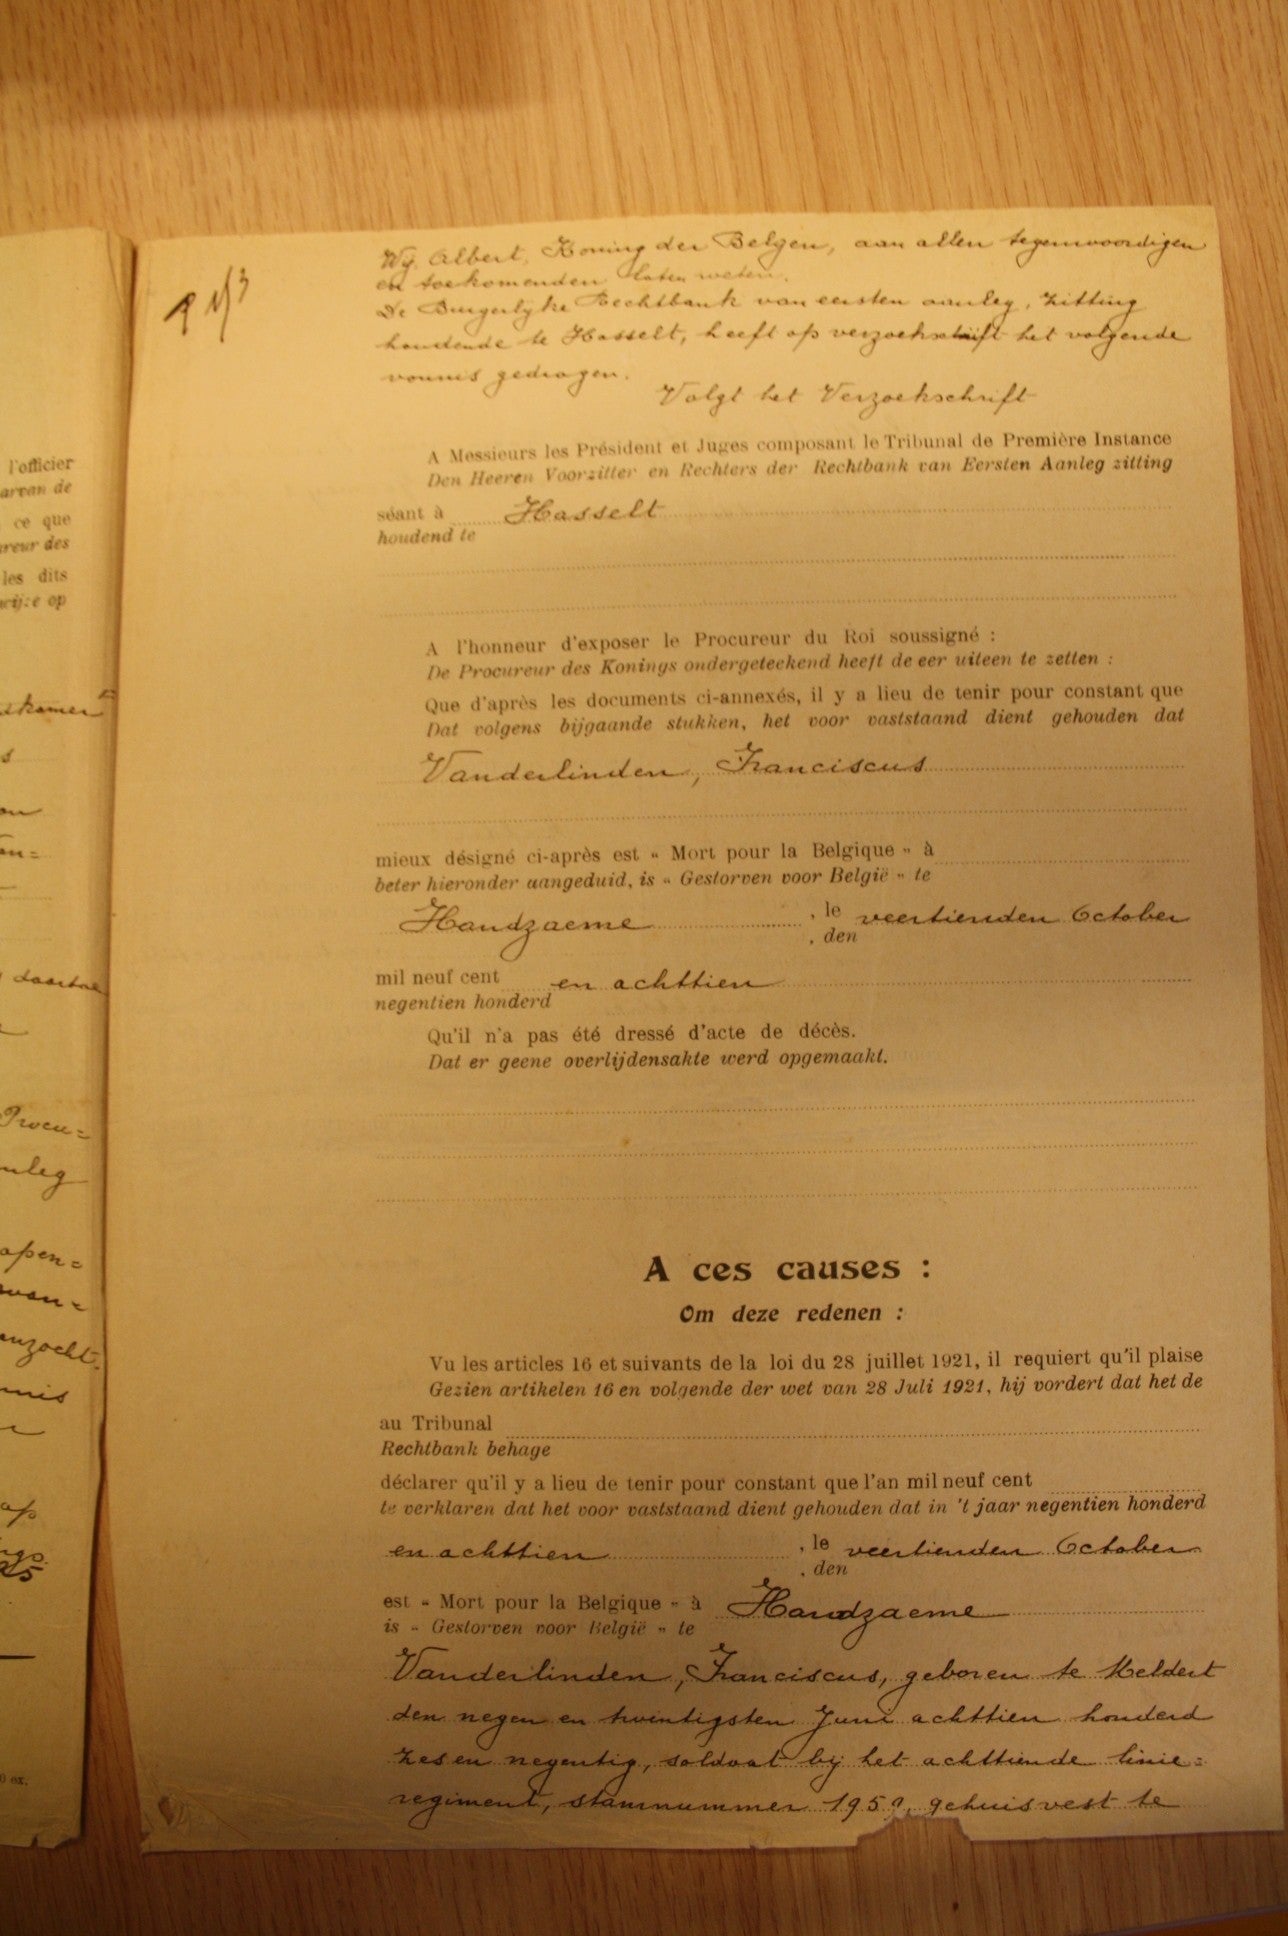 l'officier
arvan de
ce que
ureur des
les dits
op
dkamer
s
on
en=
daartoe
Procu=
nleg
open=
wan=
nzocht.
nnis
e
op
25
R N 3
Wij Albert, Koning der Belgen, aan allen tegenwoordigen
en toekomenden laten weten.
De Burgerlijke Rechtbank van eersten aanleg, zitting
houdende te Hasselt, heeft op verzoekschrift het volgende
vonnis gedragen.
Volgt het Verzoekschrift
A Messieurs les Président et Juges composant le Tribunal de Première Instance
Den Heeren Voorzitter en Rechters der Rechtbank van Eersten Aanleg zitting
séant à Hasselt
houdend te
A l'honneur d'exposer le Procureur du Roi soussigné :
De Procureur des Konings ondergeteekend heeft de eer uiteen te zetten :
Que d'après les documents ci-annexés, il y a lieu de tenir pour constant que
Dat volgens bijgaande stukken, het voor vaststaand dient gehouden dat
Vanderlinden, Franciscus
mieux désigné ci-après est « Mort pour la Belgique » à
beter hieronder aangeduid, is « Gestorven voor België » te
Handzaeme, le veertienden October
, den
mil neuf cent en achttien
negentien honderd
Qu'il n'a pas été dressé d'acte de décès.
Dat er geene overlijdensakte werd opgemaakt.
A ces causes :
Om deze redenen :
Vu les articles 16 et suivants de la loi du 28 juillet 1921, il requiert qu'il plaise
Gezien artikelen 16 en volgende der wet van 28 Juli 1921, hij vordert dat het de
au Tribunal
Rechtbank behage
déclarer qu'il y a lieu de tenir pour constant que l'an mil neuf cent
te verklaren dat het voor vaststaand dient gehouden dat in 't jaar negentien honderd
en achttien, le veertienden October
, den
est « Mort pour la Belgique » à Handzaeme
is « Gestorven voor België » te
Vanderlinden, Franciscus, geboren te Meldert
den negen en twintigsten Juni achttien honderd
zes en negentig, soldaat bij het achttiende linie=
regiment, stamnummer 1959, gehuisvest te